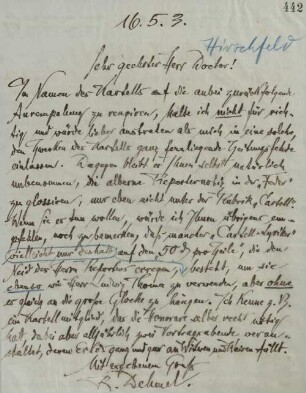 442
16.5.3.
Hirschfeld
Sehr geehrter Herr Doctor!
Im Namen des Kartells auf die anbei zurückfolgende
Anrempelung zu reagieren, halte ich nicht für rich-
tig und würde lieber austreten als mich in eine solche
den Zwecken des Kartells ganz fernliegende Zeitungsfehde
einlassen. Dagegen bleibt es Ihnen selbst natürlich
unbenommen, die alberne Reporternotiz in der "Feder"
zu glossiren, nur eben nicht unter der Rubrik "Cartell".
Wenn Sie es tun wollen, würde ich Ihnen übrigens em-
pfehlen, noch zu bemerken, daß mancher "Cartell-Lyriker"
vielleicht nur deshalb auf den "50 d pro Zeile", die den
Neid des Herrn Reporters erregen, besteht, um sie
ebenso wie Herr Ludwig Thoma zu verwenden, aber ohne
es gleich an die große Glocke zu hängen. Ich kenne z. B.
ein Kartellmitglied, das die Honorare selber recht nötig
hat, dabei aber alljährlich zwei Vortragsabende veran-
staltet, deren Erlös ganz und gar an Witwen und Waisen fällt.
Mit ergebenem Gruß
R. Dehmel.